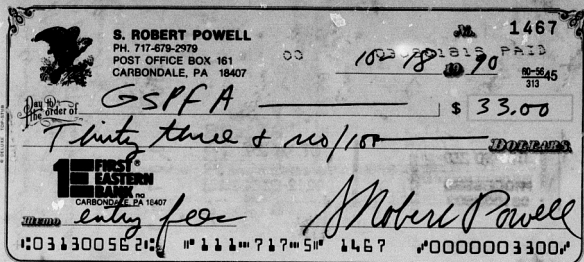 S. ROBERT POWELL
PH. 717-679-2979
POST OFFICE BOX 161
CARBONDALE, PA 18407
No. 1467
PAID
10-18 90
60-5645
313
Pay to the order of GSPFA $ 33.00
Thirty three & no/100 DOLLARS
1 FIRST EASTERN BANK® na
CARBONDALE, PA 18407
MEMO entry fees S Robert Powell
⑆031300562⑆ ⑈111⑉717⑉5⑈ 1467 ⑈0000003300⑈